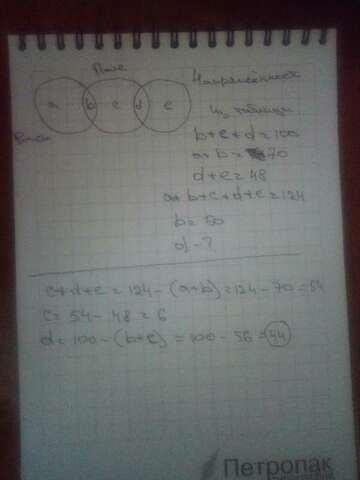 Поле
Напряжённость
a b c d e
Из таблицы
b+c+d=100
a+b=70
d+e=48
a+b+c+d+e=124
b=50
d-?
c+d+e=124-(a+b)=124-70=54
c=54-48=6
d=100-(b+c)=100-56=44
Петропак